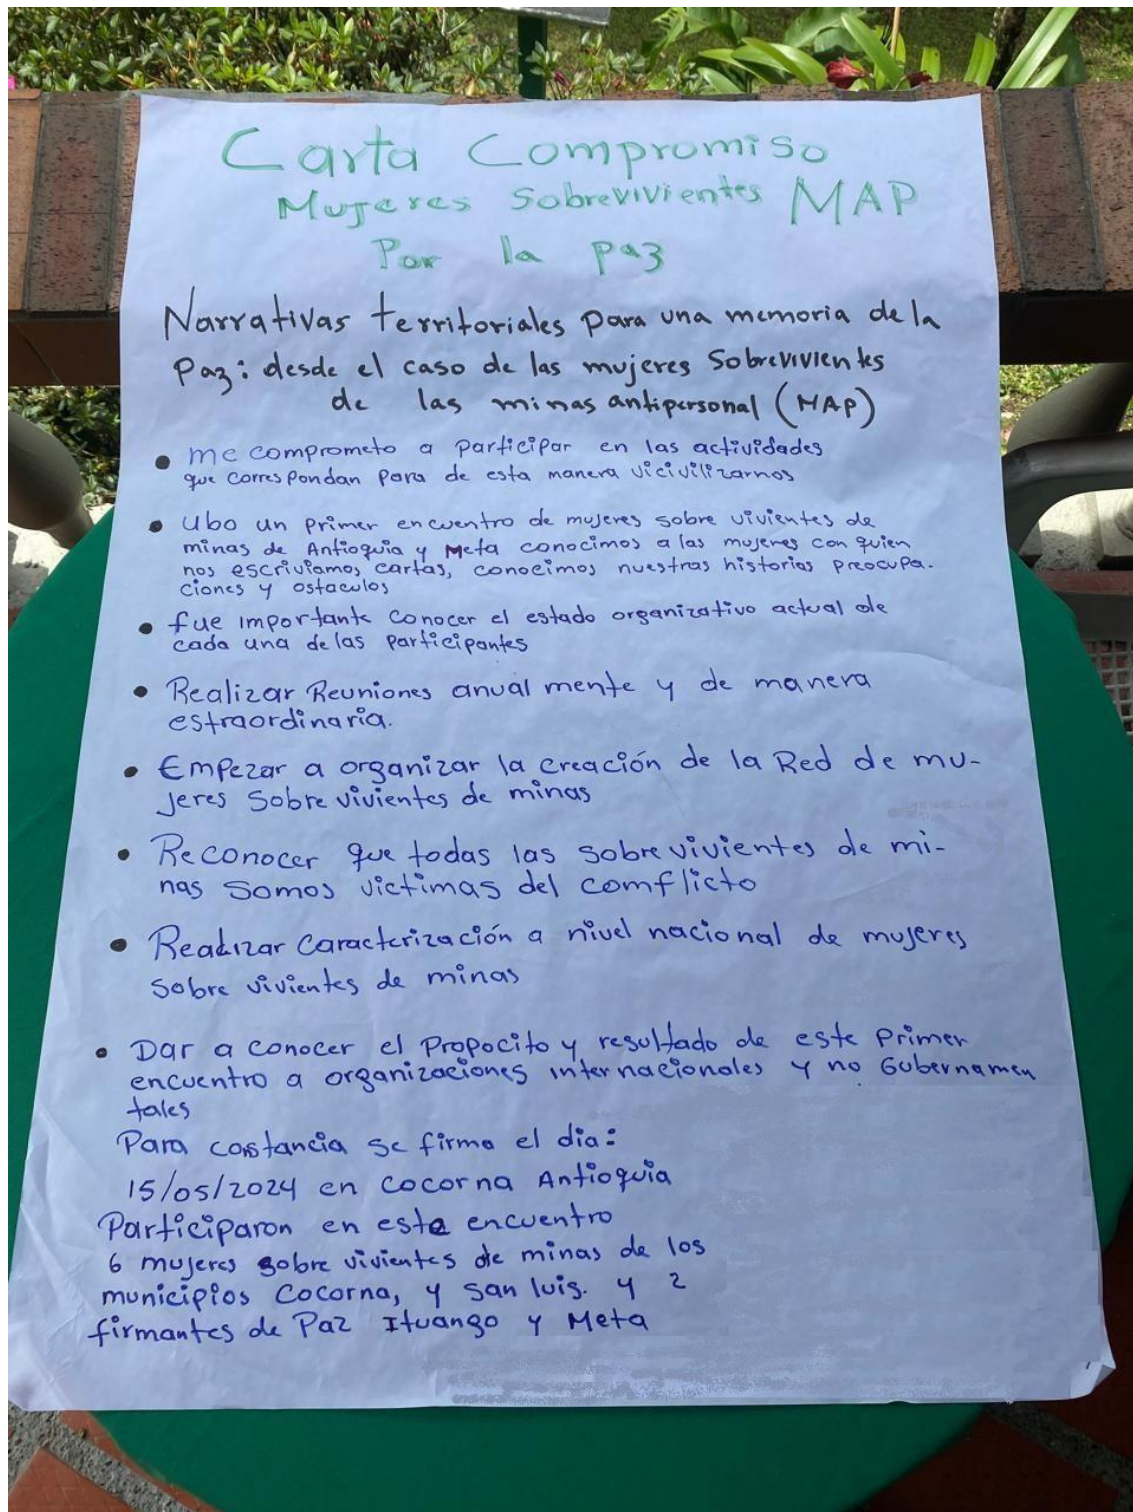 Carta Compromiso
Mujeres Sobrevivientes MAP
Por la paz
Narrativas territoriales para una memoria de la
Paz: desde el caso de las mujeres Sobrevivientes
de las minas antipersonal (MAP)
• me comprometo a participar en las actividades
que correspondan para de esta manera vicivilizarnos
• Ubo un primer encuentro de mujeres sobre vivientes de
minas de Antioquia y Meta conocimos a las mujeres con quien
nos escriviamos cartas, conocimos nuestras historias preocupa-
ciones y ostaculos
• fue importante conocer el estado organizativo actual de
cada una de las participantes
• Realizar Reuniones anual mente y de manera
estraordinaria.
• Empezar a organizar la creación de la Red de mu-
jeres Sobre vivientes de minas
• Reconocer que todas las sobre vivientes de mi-
nas somos victimas del comflicto
• Realizar caracterización a nivel nacional de mujeres
sobre vivientes de minas
• Dar a conocer el Propocito y resultado de este primer
encuentro a organizaciones internacionales y no Gubernamen
tales
Para costancia se firma el dia:
15/05/2024 en Cocorna Antioquia
Participaron en este encuentro
6 mujeres sobre vivientes de minas de los
municipios Cocorna, y San luis. y 2
firmantes de Paz Ituango y Meta